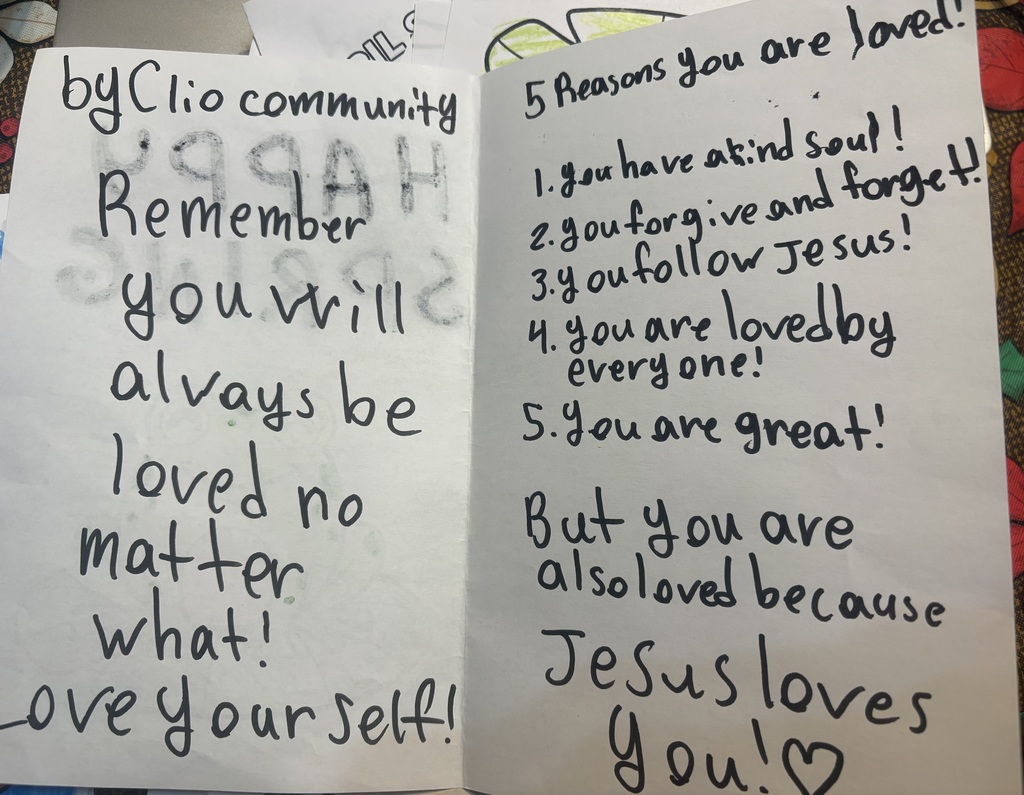 by Clio community
HAPPY
SPRING
Remember
you will
always be
loved no
matter
what!
Love yourself!
5 Reasons you are loved!
1. you have a kind soul!
2. you forgive and forget!
3. you follow Jesus!
4. you are loved by
everyone!
5. you are great!
But you are
also loved because
Jesus loves
you!♡